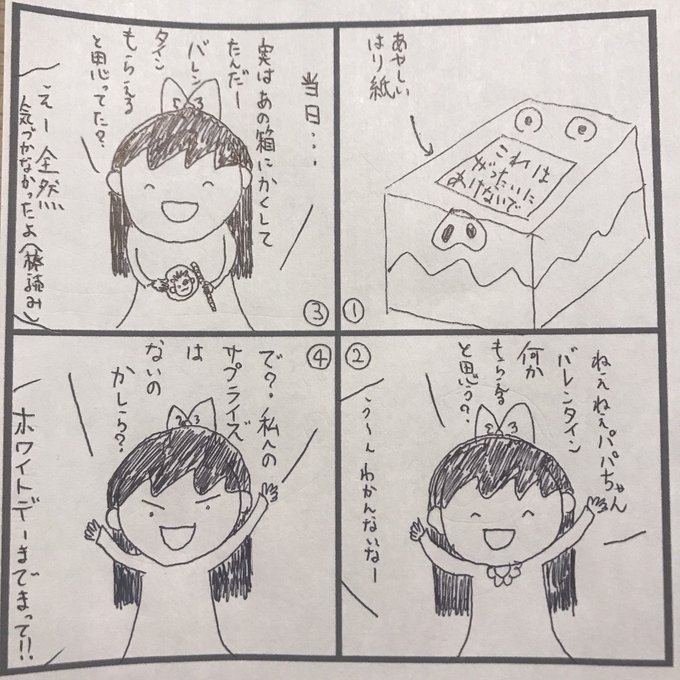 ①
あやしい
はり紙
これは
ぜったいに
あけないで
②
ねぇねぇパパちゃん
バレンタイン
何か
もらえる
と思う?
う〜ん わかんないなー
③
当日…
実はあの箱にかくして
たんだー
バレン
タイン
もらえる
と思ってた?
えー全然
気づかなかったよ(棒読み)
④
で?私への
サプライズ
は
ないの
かしら?
ホワイトデーまでまって!!